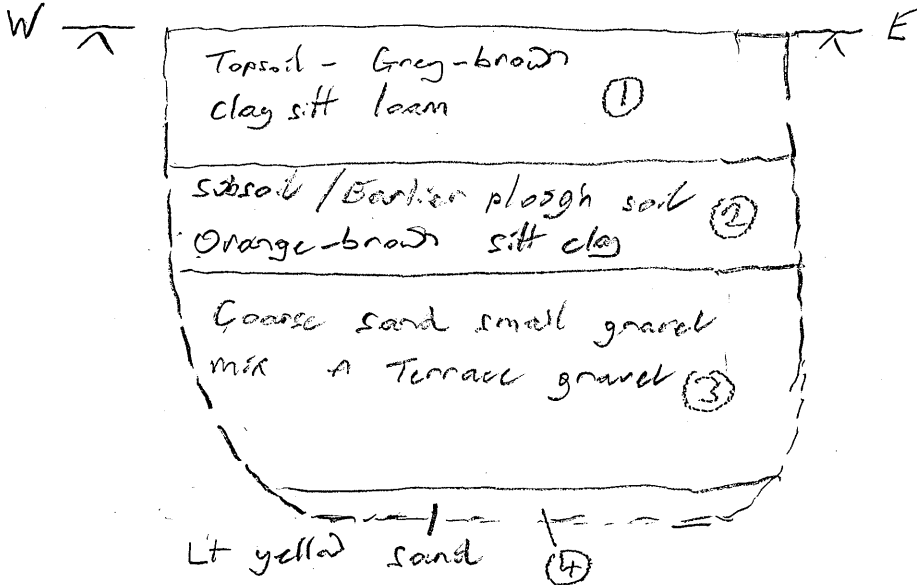 W E
Topsoil - Grey-brown
clay silt loam ①
subsoil / Earlier plough soil ②
Orange-brown silt clay
Coarse sand small gravel
mix Terrace gravel ③
Lt yellow sand ④